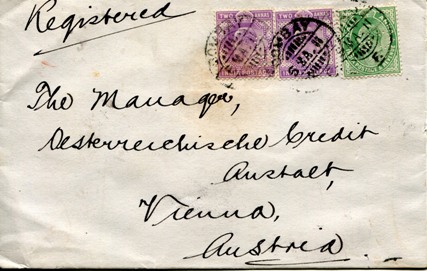 Registered
TWO ANNAS
TWO ANNAS
BOMBAY
The Manager,
Oesterreichische Credit
Anstalt,
Vienna,
Austria.